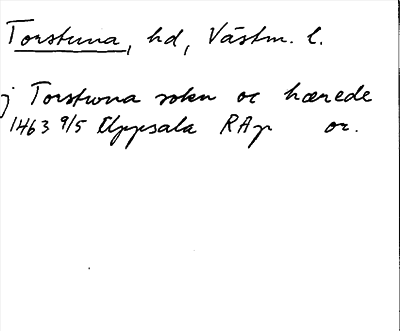 Torstuna, hd, Västm. l.
j Torstwna sokn oc hærede
1463 9/5 Uppsala RAp or.